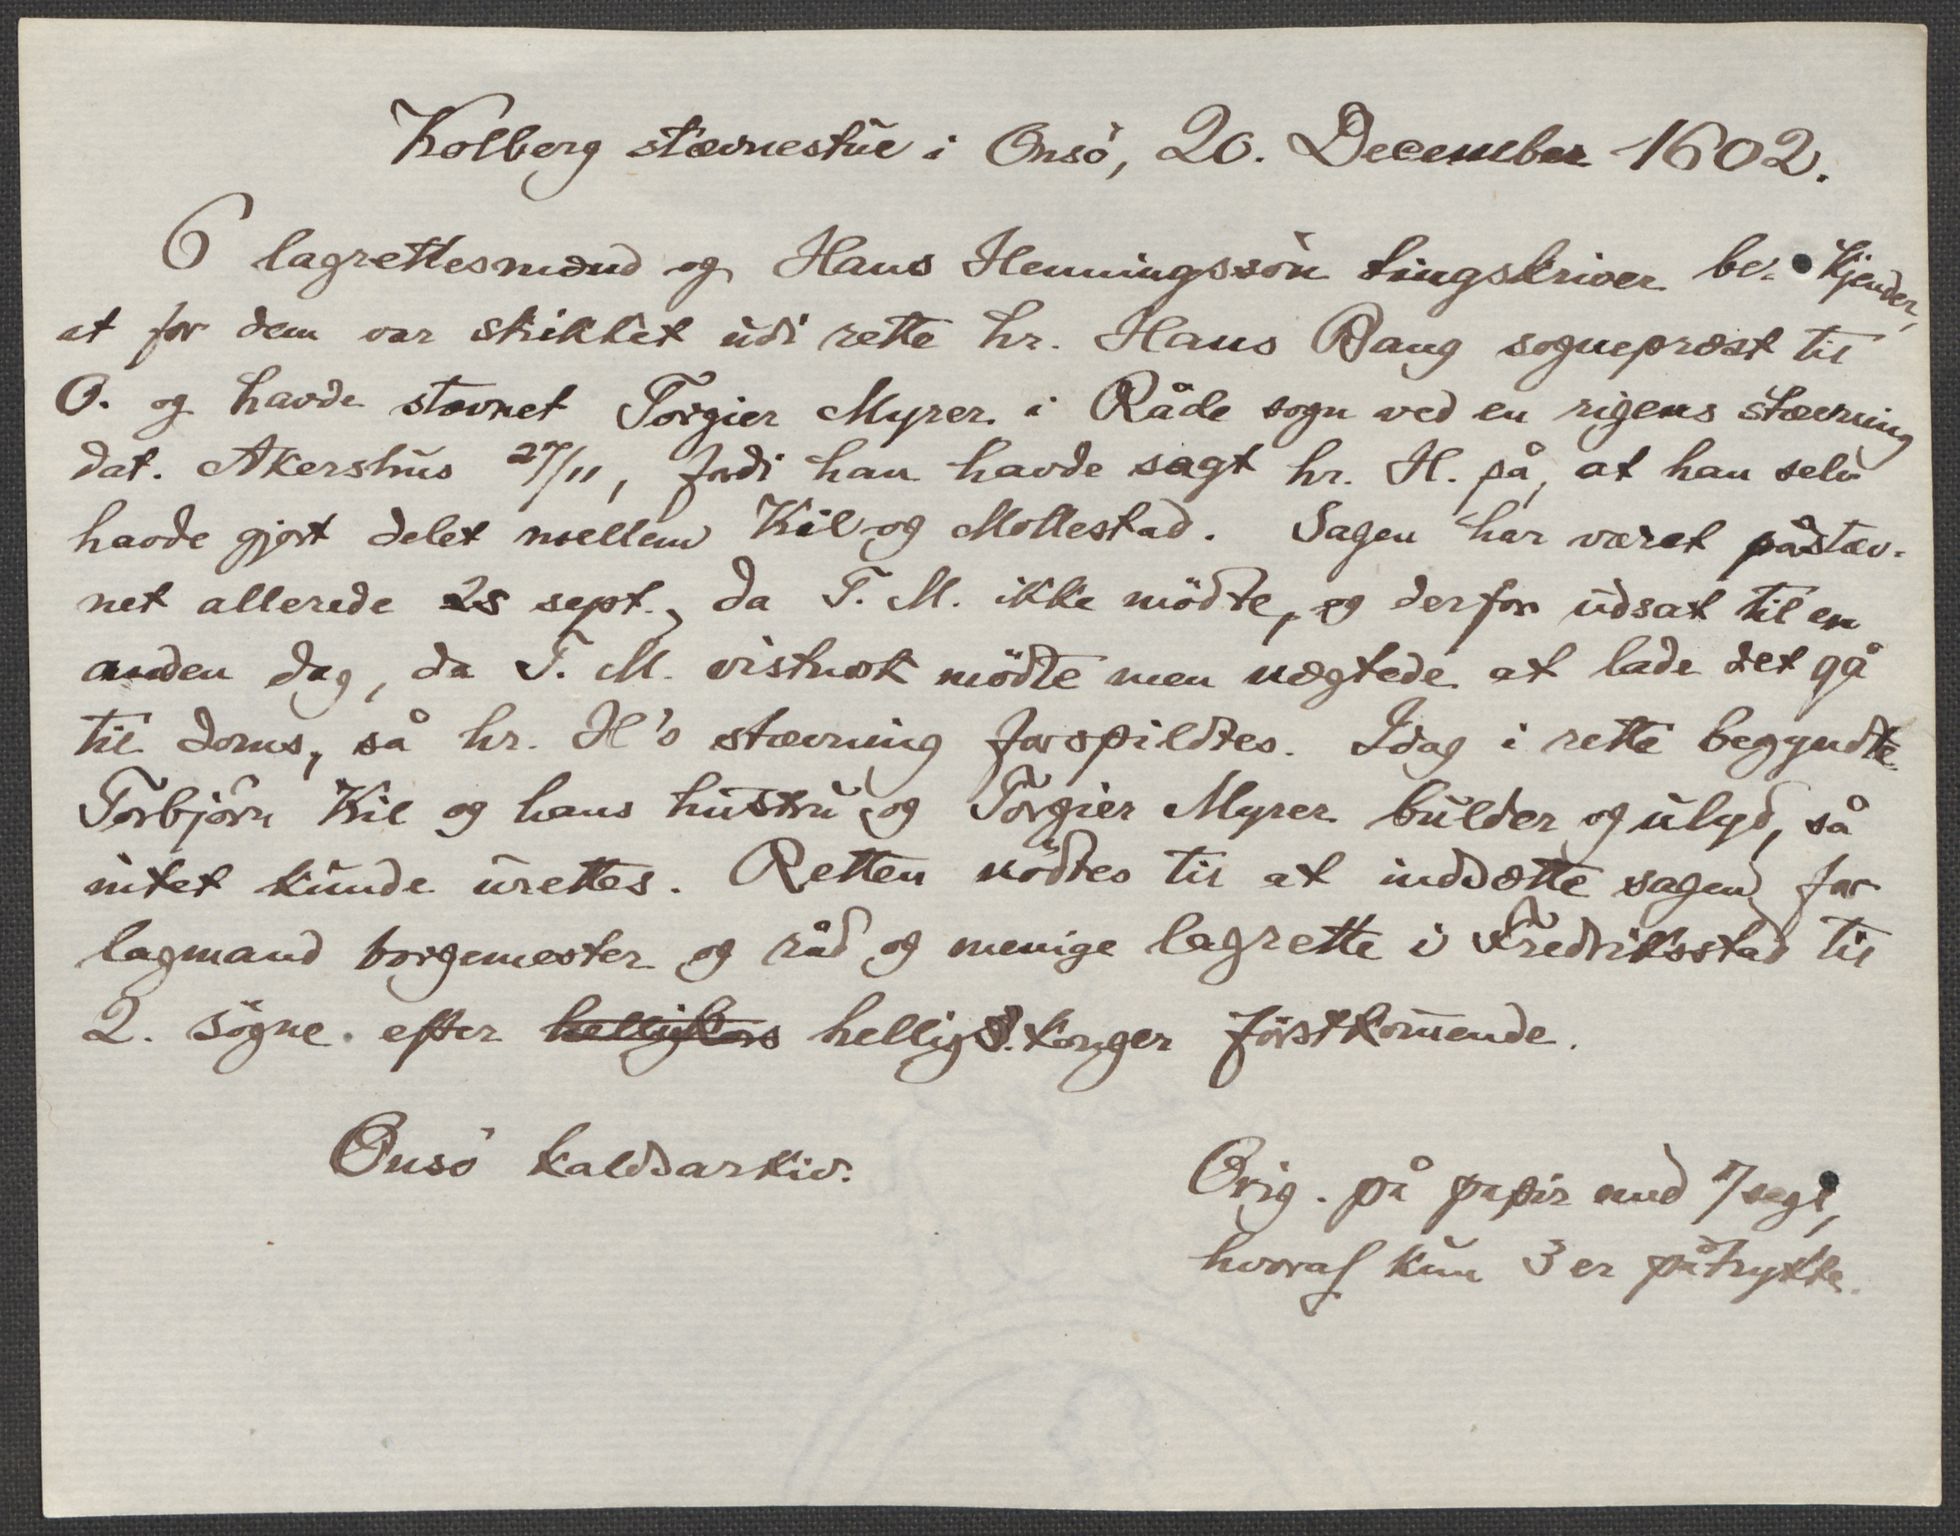 Kolberg stævnestue i Onsö, 20. December 1602.
6 lagrettesmænd og Hans Henningssön tingskriver be- kjender,
at for dem var skikket udi rette hr. Hans Bang sognepræst til
O. og havde stævnet Torgier Myrer i Råde sogn ved en rigens stævning
dat. Akershus 27/11, fordi han havde sagt hr. H. på, at han selv
havde gjort delet mellem Kil og Mollestad. Sagen har været påstæv-
net allerede 25 sept., da T. M. ikke mödte, og derfor udsat til en
anden dag, da T. M. vistnok mödte men nægtede at lade det gå
til doms, så hr. H's stævning forspildtes. Idag i rette begyndte
Torbjörn Kil og hans hustru og Torgier Myrer bulder og ulyd, så
intet kunde urettes. Retten nödtes til at indsætte sagen for
lagmand borgemester og råd og menige lagrette i Fredriksstad til
2. sögne efter helligkors hellig 3. konger förstkomende.
Onsö kaldsarkiv.
Orig. på papir med 7 segl,
hvoraf kun 3 er påtrykte.